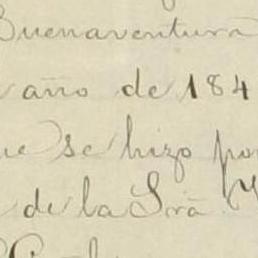 Buenaventura
año de 184
ue se hizo po
de la Sra